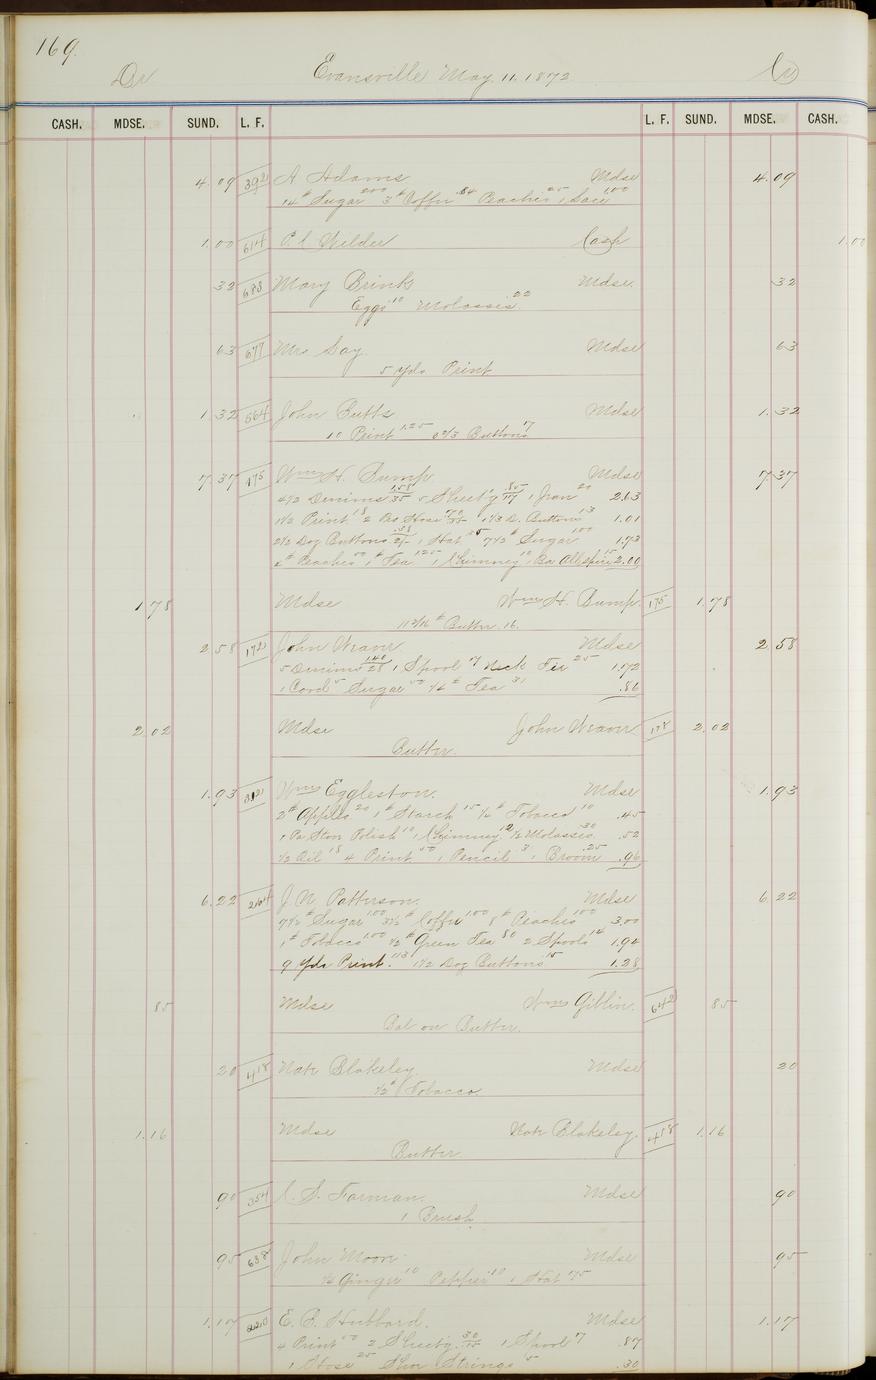 169.
Dr Evansville May. 11. 1872 Cr
CASH. MDSE. SUND. L. F. L. F. SUND. MDSE. CASH.
4.09 392 A Adams Mdse 4.09
14# Sugar 200 3# Coffee 84 Peaches 25 1 Lace 1.00
1.00 614 Wilder Cash 1.00
32 688 Mary Brink Mdse. 32
Eggs 10 Molasses 22
63 677 Mrs Day Mdse 63
5 Yds Print
1.32 564 John Butts Mdse 1.32
10 Print 1.25 Buttons 7
7.37 175 Wm H. Bump Mdse 7.37
4 1/2 Denims 1.58/35 5 Sheetg .85/17 1 Jean 20 2.63
1 1/2 Print 18 2 Prs Hose 70/35 1 1/3 D. Buttons 13 1.01
2 1/2 Doz Buttons 1 Hat 7 1/2# Sugar 100 1.73
2# Peaches 50 1# Tea 1.25 1 Chimney 10 1 Bx Allspice 15 2.00
1 78 Mdse Wm H. Bump. 175 1.78
11 2/16# Butter. 16.
2 58 172 John Weaver Mdse 2.58
5 Denims 1.40/28 1 Spool 7 Neck Tie 25 1.72
1 Cord 5 Sugar 50 Tea 31 .86
2.02 Mdse John Weaver 2.02
Butter.
1.93 312 Wm Eggleston. Mdse 1.93
2# Apples 20 1# Starch 15 Tobacco 10 .45
1 Bx Stove Polish 10 1 Chimney 12 1/2 Molasses 30 .52
1/2 Oil 18 4 Print 50 1 Pencil 3 1 Broom .25 .96
6.22 264 J. N. Patterson. Mdse 6.22
7 1/2# Sugar 1.00 3 1/2# Coffee 1.00 8# Peaches 1.00 3.00
1# Tobacco 1.00 1/2# Green Tea 80 2 Spools 14 1.94
9 Yds Print. 113 1 1/2 Doz Buttons 15 1.28
85 Mdse Wm Giblin. 642 85
Bal on Butter.
20 418 Nate Blakeley. Mdse 20
1/2# Tobacco
1.16 Mdse Nate Blakeley. 418 1.16
Butter
90 354 C. S. Forman. Mdse 90
1 Brush.
95 638 John Moon Mdse 95
Ginger 10 Pepper 10 1 Hat 75
1.17 220 E. B. Hubbard. Mdse 1.17
4 Print 50 2 Sheetg. 30/15 1 Spool 7 .87
1 Hose 25 Shoe Strings 5 .30